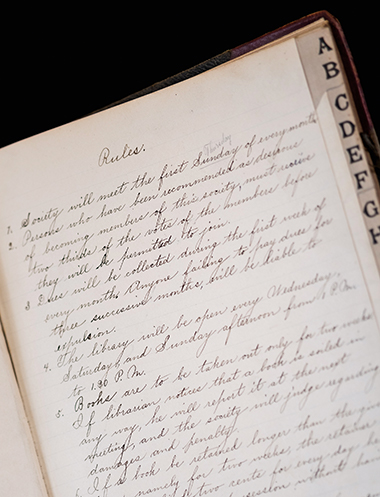 A
B
C
D
E
F
G
H
Rules.
Thursday
1. Society will meet the first Sunday of every month
2. Persons who have been recommended as desirous
of becoming members of this society, must receive
two thirds of the votes of the members before
they will be permitted to join.
3 Dues will be collected during the first week of
every month. Anyone failing to pay dues for
three successive months, will be liable to
expulsion.
4. The library will be open every Wednesday,
Saturday and Sunday afternoon from 1 P.M.
to 1.30 P.M.
5. Books are to be taken out only for two weeks
If librarian notices that a book is soiled in
any way, he will report it at the next
meeting, and the society will judge regarding
damages and penalty.
6 If a book be retained longer than the give
namely for two weeks, the retainer
of two cents for every day he
person without hav